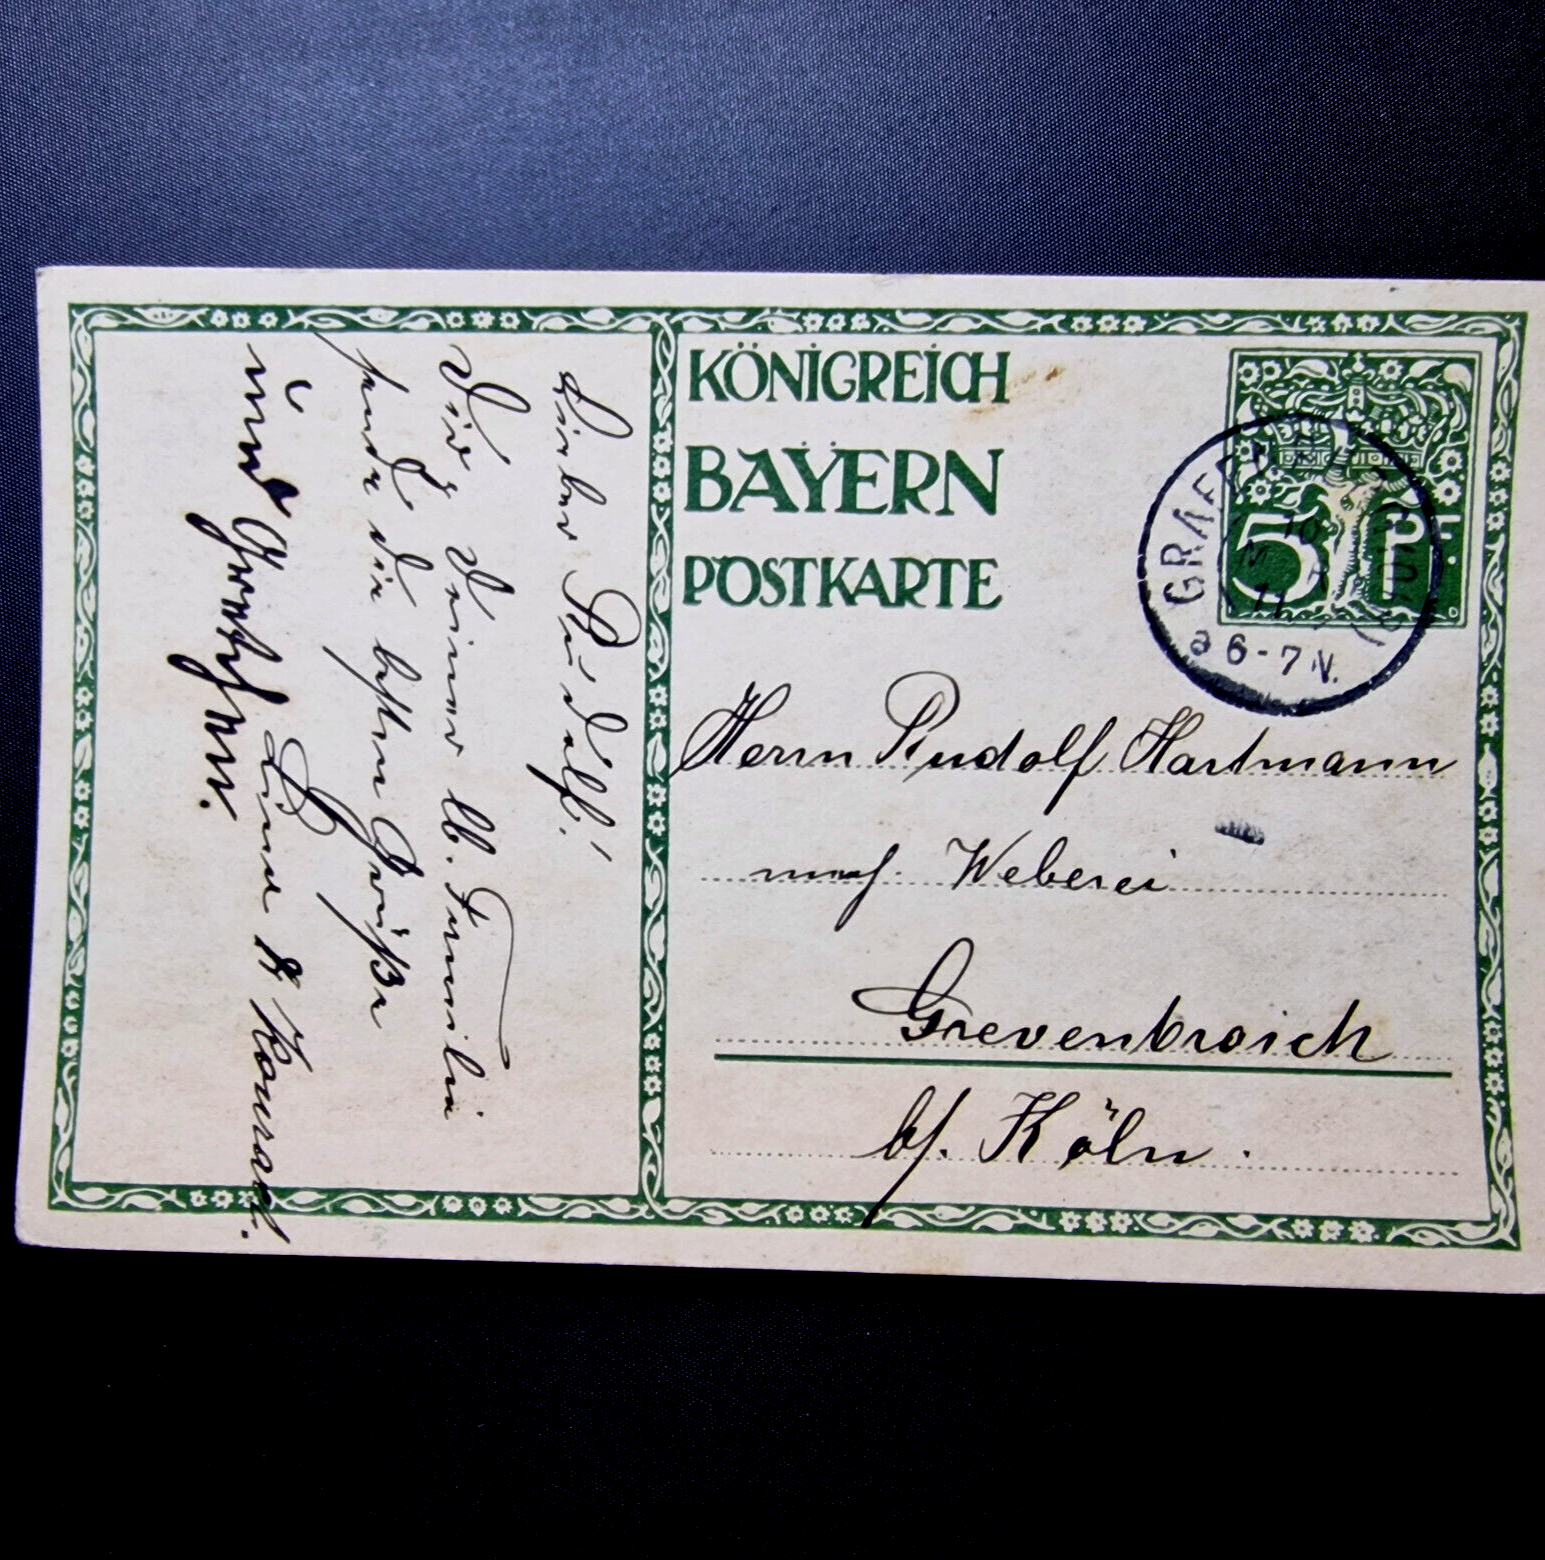 KÖNIGREICH
BAYERN
POSTKARTE
5 PF
a 6-7 N.
Herrn Rudolf Hartmann
mech. Weberei
Grevenbroich
b/. Köln.
Lieber Rudolf!
Dir, Deiner lb. Familie
sende die besten Grüße
Konrad.
und